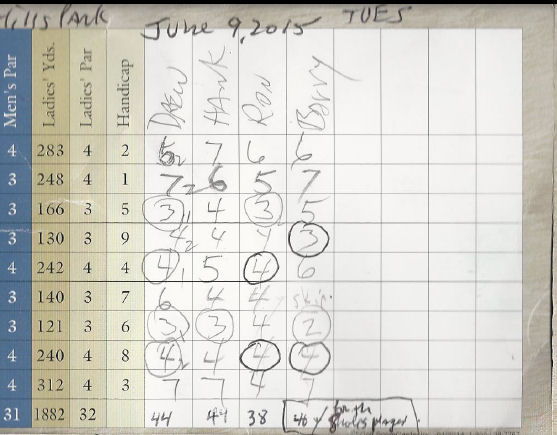 ills Park TUES
June 9, 2015
Men's Par Ladies' Yds. Ladies' Par Handicap DREW HANK RON Barry
4 283 4 2 5 2 7 6 6
3 248 4 1 7 2 6 5 7
3 166 3 5 3 1 4 3 5
3 130 3 9 4 2 4 4 3
4 242 4 4 4 1 5 4 6
3 140 3 7 6 4 4 skip
3 121 3 6 3 3 4 2
4 240 4 8 4 4 4 4
4 312 4 3 7 7 4 7
31 1882 32 44 44 38 40 for the
8 holes played